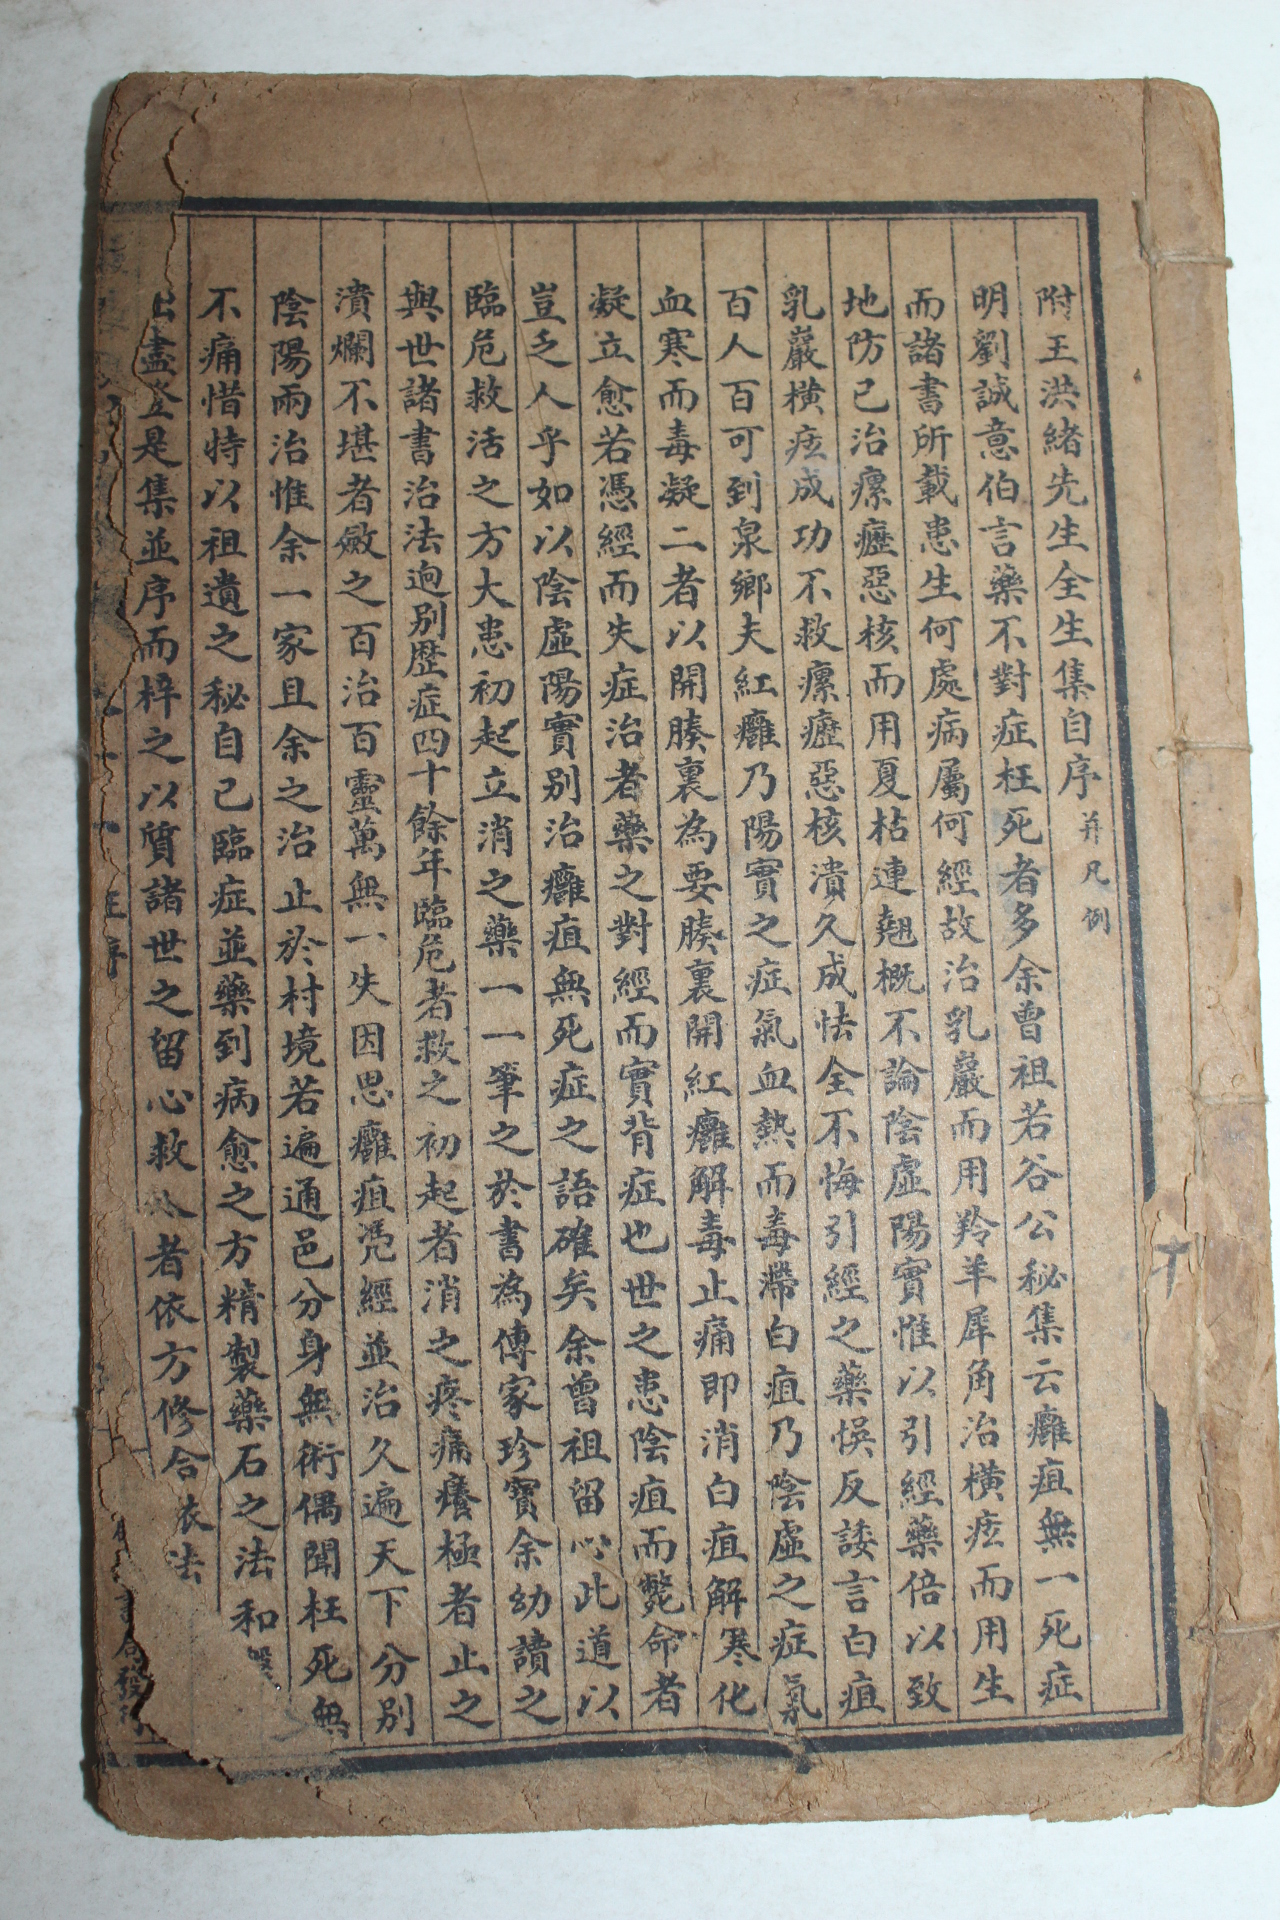 附王洪緒先生全生集自序 并凡例
明劉誠意伯言藥不對症枉死者多余曾祖若谷公秘集云癰疽無一死症
而諸書所載患生何處病屬何經故治乳巖而用羚羊犀角治橫痃而用生
地防己治瘰癧惡核而用夏枯連翹概不論陰虛陽實惟以引經藥倍以致
乳巖橫痃成功不救瘰癧惡核潰久成怯全不悔引經之藥悞反諉言白疽
百人百可到泉鄉夫紅癰乃陽實之症氣血熱而毒滯白疽乃陰虛之症氣
血寒而毒凝二者以開腠裏為要腠裏開紅癰解毒止痛即消白疽解寒化
凝立愈若憑經而失症治者藥之對經而實背症也世之患陰疽而斃命者
豈乏人乎如以陰虛陽實別治癰疽無死症之語確矣余曾祖留心此道以
臨危救活之方大患初起立消之藥一一筆之於書為傳家珍寶余幼讀之
與世諸書治法逈別歷症四十餘年臨危者救之初起者消之疼痛癢極者止之
潰爛不堪者斂之百治百靈萬無一失因思癰疽凴經並治久遍天下分別
陰陽兩治惟余一家且余之治止於村境若遍通邑分身無術偶聞枉死無
不痛惜特以祖遺之秘自己臨症並藥到病愈之方精製藥石之法和
盡登是集並序而梓之以質諸世之留心救人者依方修合依法